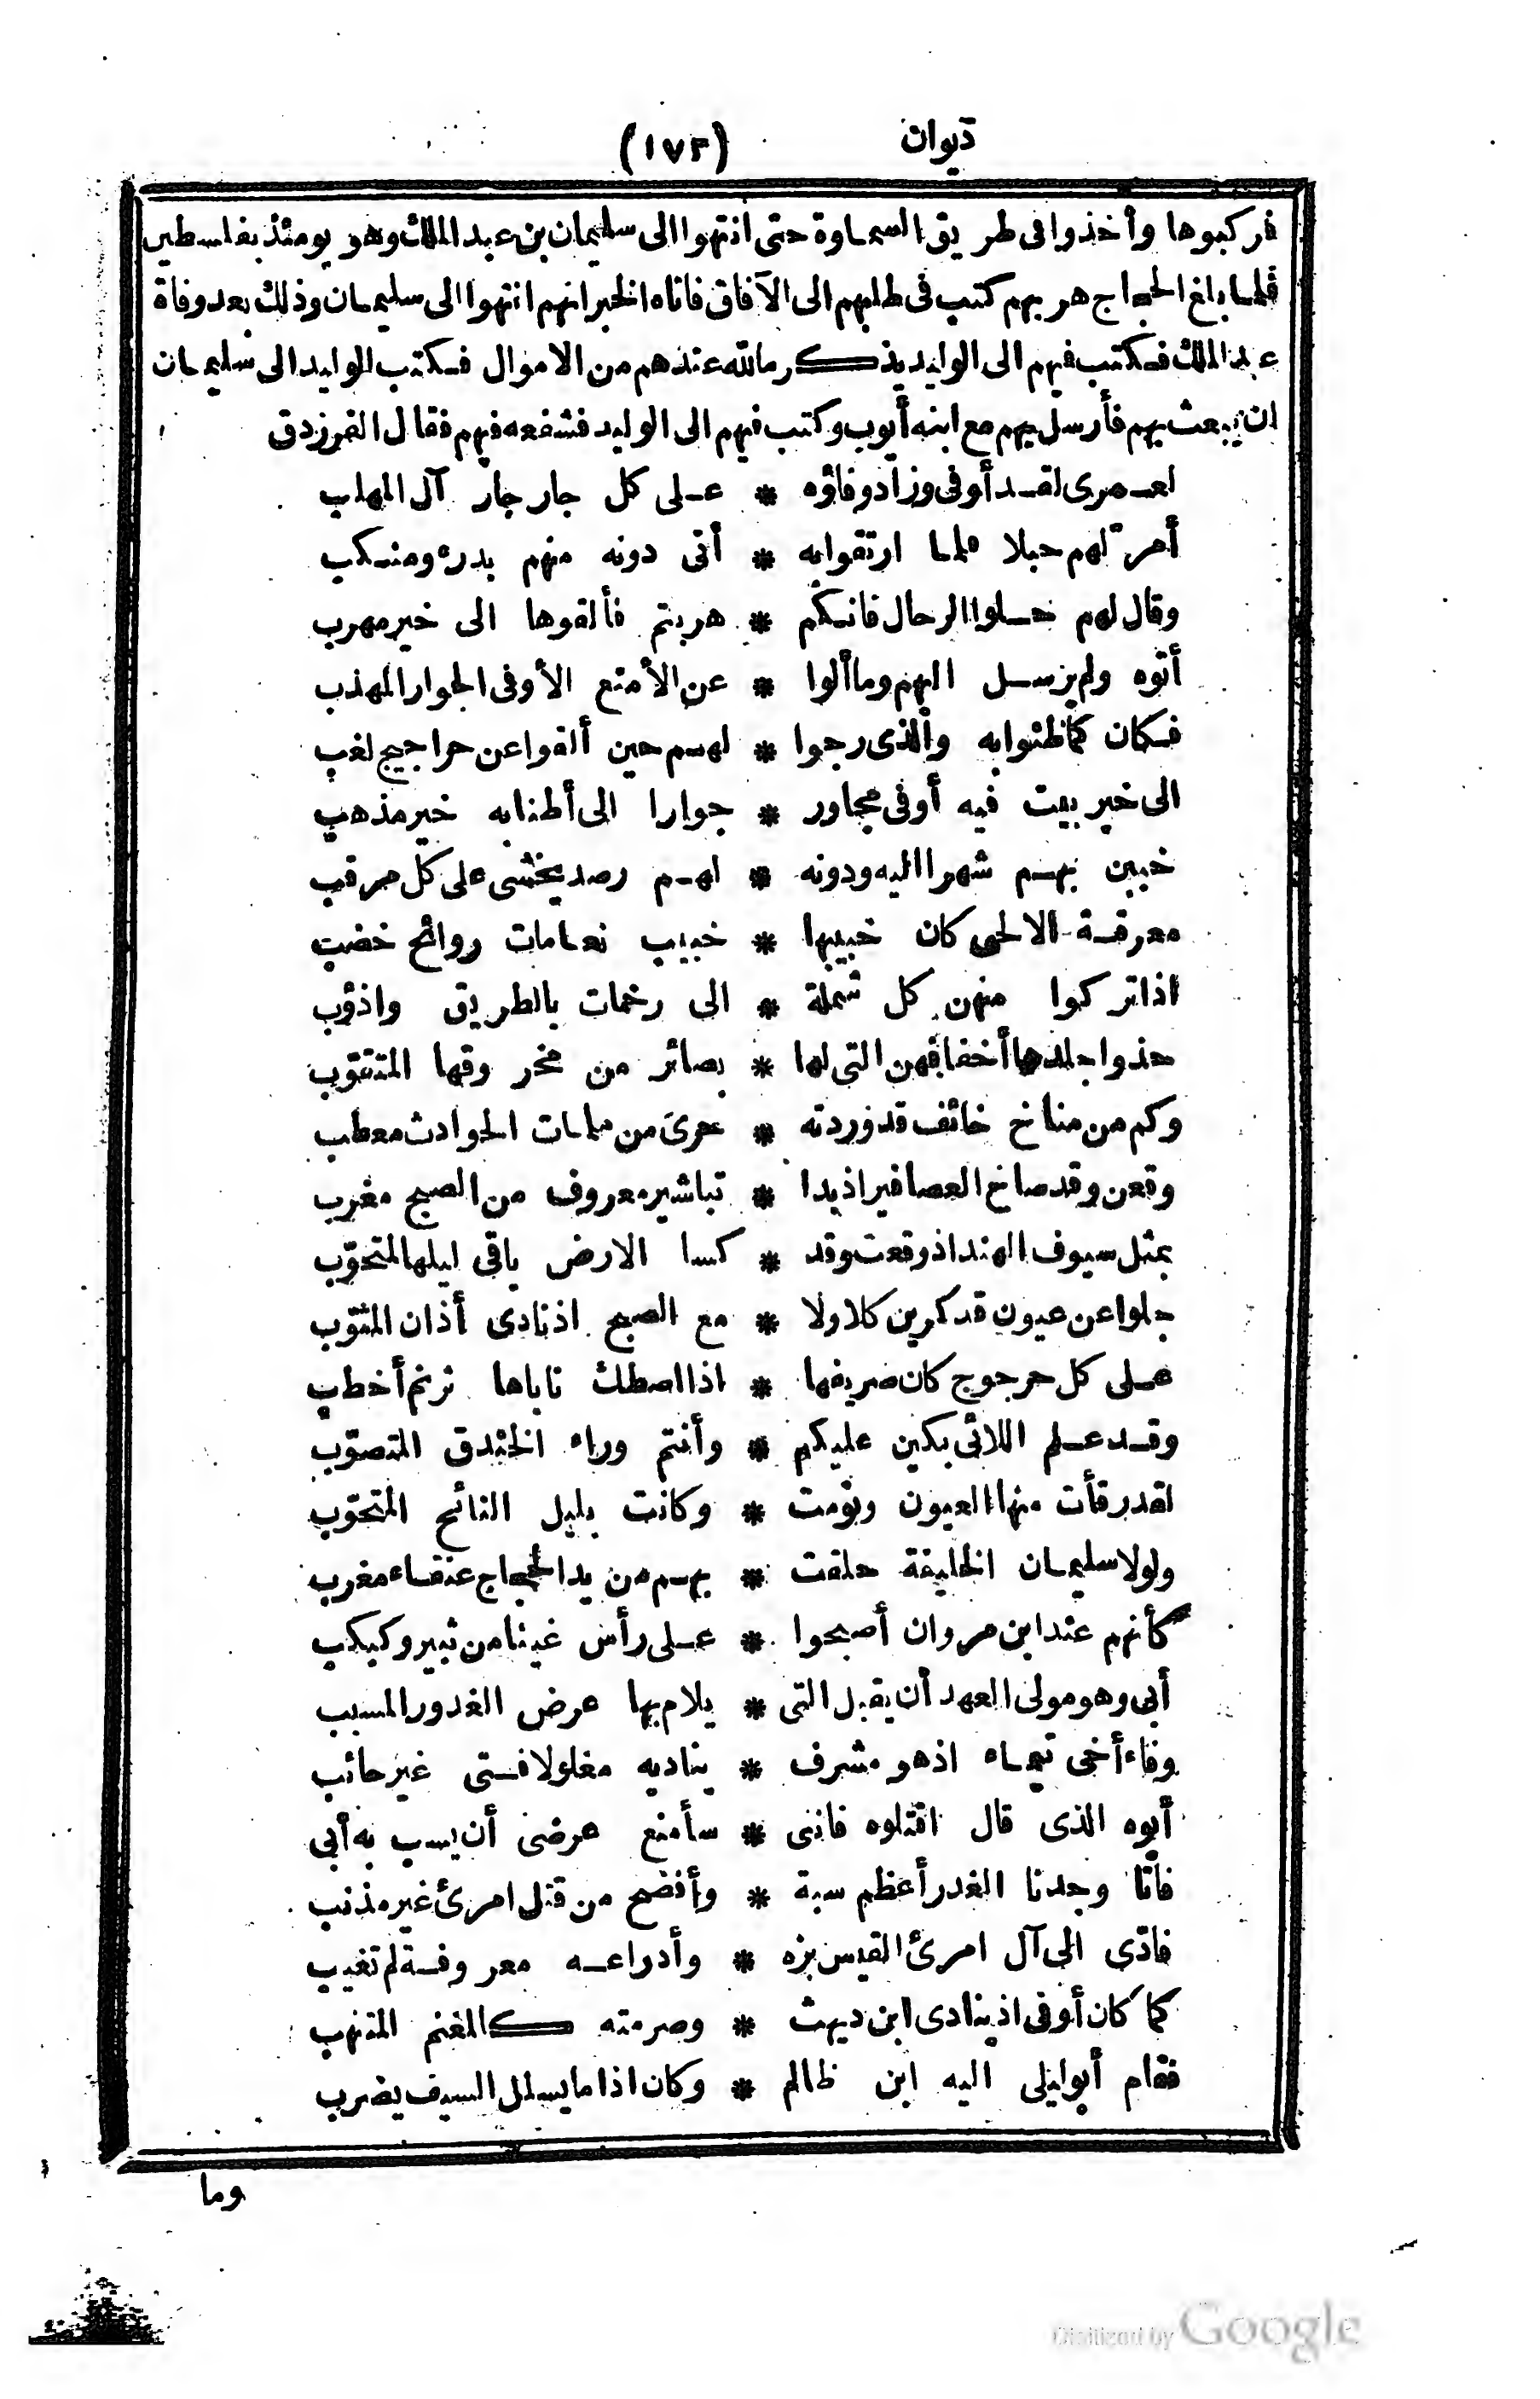 ديوان (١٧٢)
فركبوها وأخذوا فى طريق السماوة حتى انتهوا الى سليمان بن عبد الملك وهو يومئذ بفلسطين
فلما بلغ الحجاج هربهم كتب فى طلبهم الى الآفاق فاتاه الخبر انهم انتهوا الى سليمان وذلك بعد وفاة
عبد الملك فكتب فيهم الى الوليد يذكر مالله عندهم من الاموال فكتب الوليد الى سليمان
ان يبعث بهم فأرسل بهم مع ابنه أيوب وكتب فيهم الى الوليد فشفعه فيهم فقال الفرزدق
لعمرى لقد أوفى وزاد وفاؤه * على كل جار جار آل المهلب
أمرّ لهم حبلا فلما ارتقوا به * أتى دونه منهم بدرء ومنكب
وقال لهم حلوا الرحال فانكم * هربتم فألقوها الى خير مهرب
أتوه ولم يرسل اليهم وما ألوا * عن الأمنع الأوفى الجوار المهذب
فكان كما ظنوا به والذى رجوا * لهم حين ألقوا عن حراجيج لغب
الى خير بيت فيه أوفى مجاور * جوارا الى أطنابه خير مذهب
خببن بهم شهرا اليه ودونه * لهم رصد يخشى على كل مرقب
معرقة الالحى كان خبيبها * خبيب نعامات روائح خضب
اذا تركوا منهن كل شملة * الى رخمات بالطريق واذؤب
حذوا جلدها أخفافهن التى لها * بصائر من مخر وقها المتقوب
وكم من مناخ خائف قد وردته * حرى من ملمات الحوادث معطب
وقعن وقد صاخ العصافير اذ بدا * تباشير معروف من الصبح مغرب
بمثل سيوف الهند اذ وقعت وقد * كسا الارض باقى ليلها المتجوّب
جلوا عن عيون قد كرين كلا ولا * مع الصبح اذ نادى أذان المثوّب
على كل حرجوج كان صريفها * اذا اصطك ناباها ترنم أخطب
وقد علم اللائى بكين عليكم * وأنتم وراء الخندق المتصوّب
لقد رقأت منها العيون ونومت * وكانت بليل النائح المتحوّب
ولولا سليمان الخليفة حلقت * بهم من يد الحجاج عنقاء مغرب
كأنهم عند ابن مروان أصبحوا * على رأس غينا من ثبير وكبكب
أبى وهو مولى العهد أن يقبل التى * يلام بها عرض الغدور المسبب
وفاء أخى تيماء اذ هو مشرف * يناديه مغلولا فتى غير جانب
أبوه الذى قال اقتلوه فاننى * سأمنع عرضى أن يسب به أبى
فانّا وجدنا الغدر أعظم سبة * وأفضح من قتل امرئ غير مذنب
فادّى الى آل امرئ القيس بزه * وأدراعه معروفة لم تغيب
كما كان أوفى اذ ينادى ابن ديهث * وصرمته كالغنم المتنهب
فقام أبو ليلى اليه ابن ظالم * وكان اذا ما يسلل السيف يضرب
وما
Digitized by Google